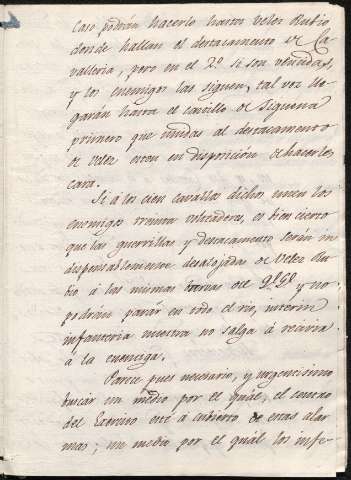 caso podrán hacerlo hasta Velez Rubio
donde hallan el destacamento de Ca-
valleria; pero en el 2.º si son vencidas,
y los enemigos las siguen, tal vez lle-
garán hasta el castillo de Siquena
primero que unidas al destacamento
de Velez esten en disposicion de hacerles
cara.
Si á los cien cavallos dichos unen los
enemigos treinta volteadores, es bien cierto
que las guerrillas y destacamento serán in
dispensablemente desalojadas de Velez Ru-
bio á las mismas barvas de y no
podrán parár en todo el rio, interin
infanteria nuestra no salga á recivir
á la enemiga.
Parece pues necesario, y urgentisimo
buscar un medio por el qual, el centro
del Exército esté á cubierto de estas alar
mas; un medio por el qual los infe-